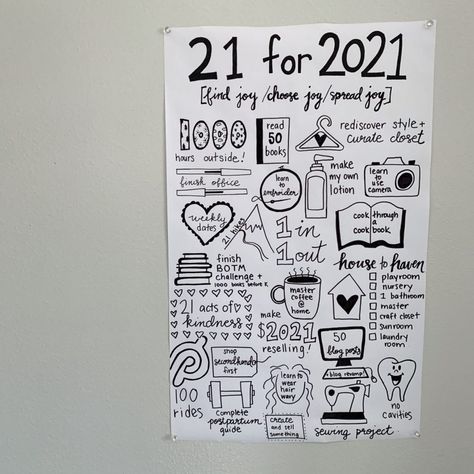 21 for 2021
[find joy/choose joy/spread joy]
1000
hours outside!
read
50
books
rediscover style +
curate closet
finish office
learn
to
embroider
make
my own
lotion
learn
to use
camera
weekly
dates
21 hikes
1 in
1 out
cook through
a
cook book
finish
BOTM
challenge +
1000 books before K
master
coffee
@
home
house to haven
playroom
nursery
1 bathroom
master
craft closet
sunroom
laundry
room
21 acts of
kindness
make
$2021
reselling!
50
blog posts
blog revamp!
100
rides
shop
secondhand
first
complete
postpartum
guide
learn to
wear
hair
wavy
create
and sell
something
sewing project
no
cavities